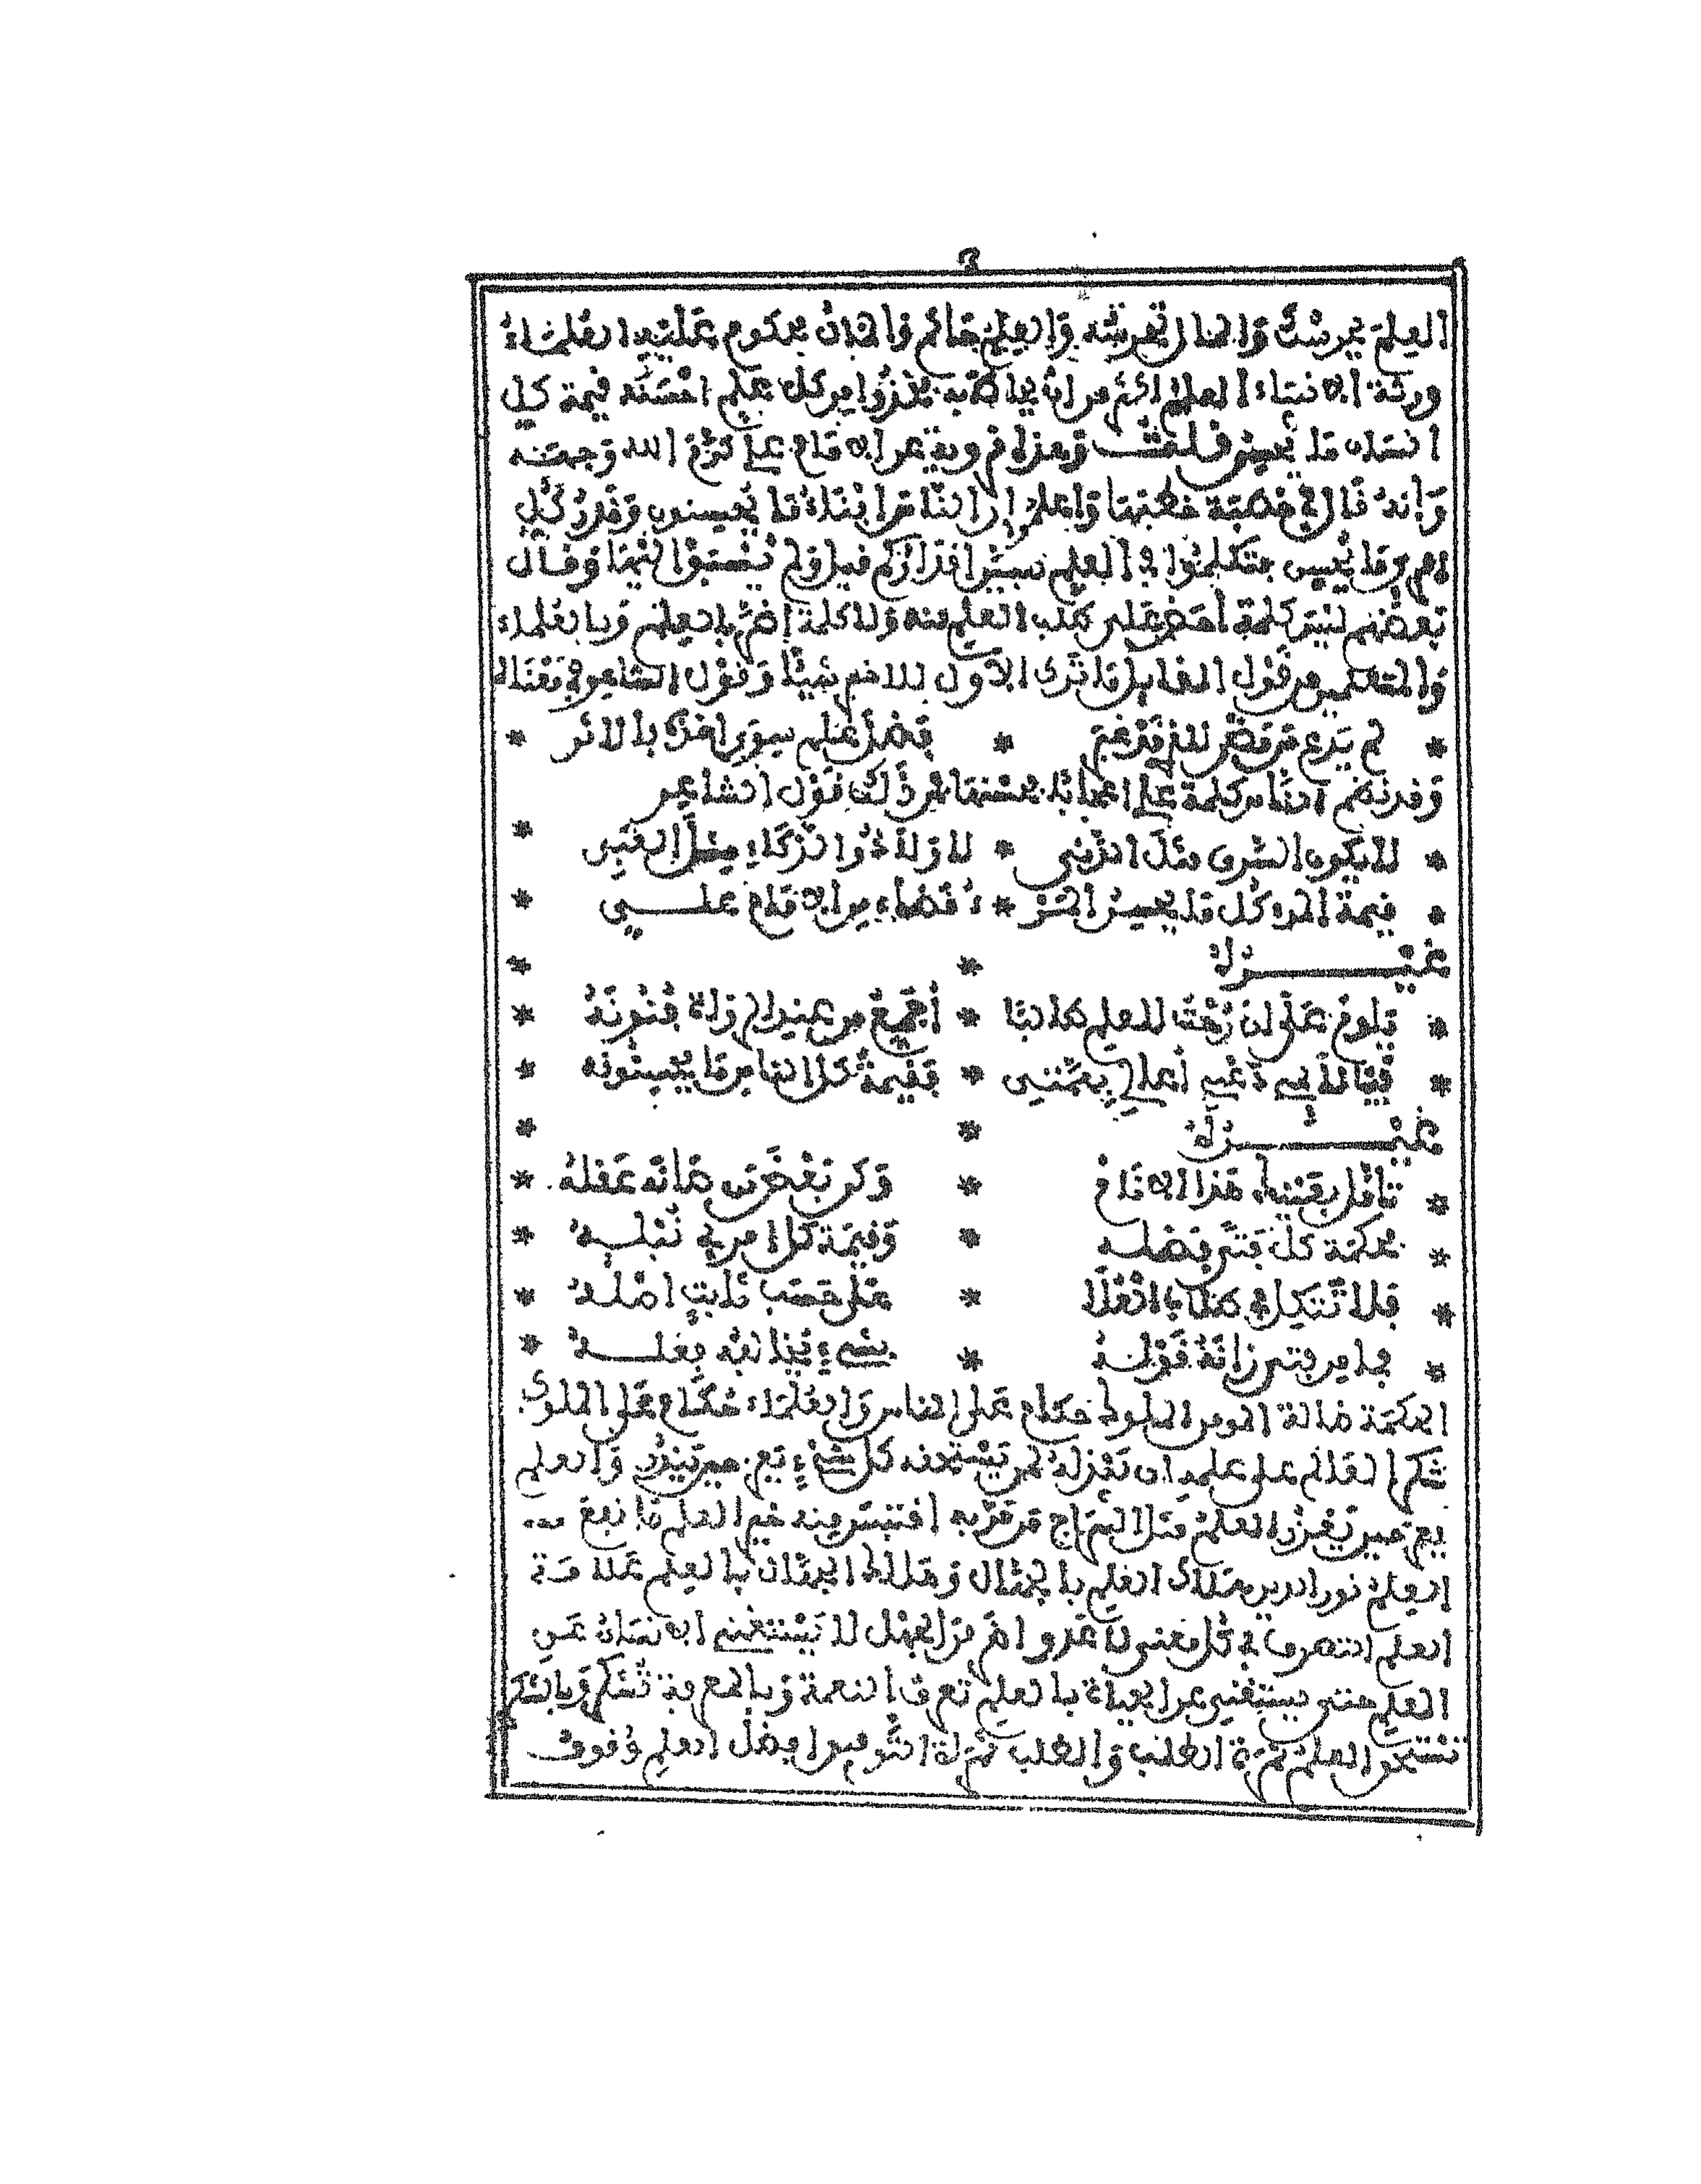 3
العلم يحرسك والمال تحرسه والعلم حاكم والمال محكوم عليه العلماء
ورثة الانبياء العلم اكثر من ان يحاط به فخذوا من كل علم احسنه قيمة كل
انسان ما يحسن قلت وهذا مروي عن الامام علي كرم الله وجهه
وانه قال في خطبة خطبها واعلموا ان الناس ابناء ما يحسنون وقدر كل
امرئ ما يحسن فتكلموا في العلم تبين اقداركم قيل ولم يسبق اليها وقال
بعضهم ليس كلمة احض على طلب العلم منه ولا كلمة اضر بالعلم وبالعلماء
والمتعلمين من قول القائل ما ترك الاول للاخر شيئا وقول الشاعر في معناه
* لم يدع من مضى للذي قد غبر * فضل علم سوى اخذه بالاثر *
وقد نظم الناس كلمة علي اعجابا بحسنها فمن ذلك قول الشاعر
* لا يكون السري مثل الدني * لا ولا ذو الذكاء مثل الغبي *
* قيمة المرء كل ما يحسن المر * ء قضاء من الامام علي *
غيره * *
* يلوم علي ان رحت للعلم طالبا * اجمع من عند الرواة فنونه *
* فيا لائمي دعني اغالي بقيمتي * فقيمة كل الناس ما يحسنونه *
غيره * *
* تامل بعينيك هذا الانام * وكن بعض من صانه عقله *
* فحكمة كل فتى فضله * وقيمة كل امرئ نبله *
* فلا تتكل في طلاب العلا * على حسب ثابت اصله *
* فما من فتى زانه قوله * بشيء يخالفه فعله *
الحكمة ضالة المومن الملوك حكام على الناس والعلماء حكام على الملوك
شكر العالم على علمه ان يبذله لمن يستحقه كل شيء يعز حين ينزر والعلم
يعز حين يغزر العلم مثل السراج من مر به اقتبس منه خير العلم ما نفع
العلم نور الدين هلاك العلم بالجهال وهلاك الجهال بالعلم علامة
العلم التصرف في كل معنى لا عدو اضر من الجهل لا يستغني الانسان عن
العلم حتى يستغني عن الحياة بالعلم تعرف النعمة وبالمعرفة تشكر وبالشكر
تستحق العلم ثمرة الطلب والطلب ثمرة التوفيق افضل العلم وقوف